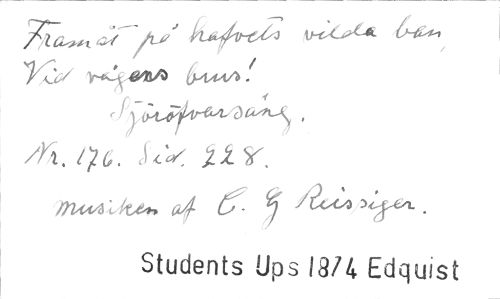 Framåt på hafvets vilda ban,
Vid vågens brus!
Sjöröfvarsång.
Nr. 176. Sid. 228.
musiken af C. G Reissiger.
Students Ups 1874 Edquist